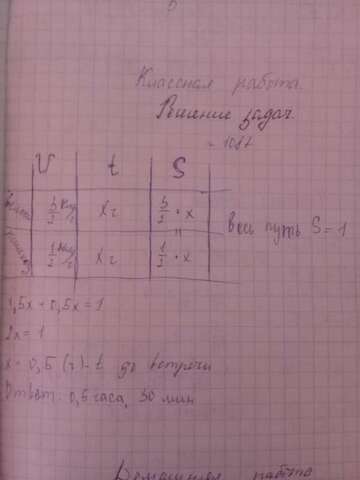 Классная работа.
Решение задач.
1087
V t S
3/2 км/ч x ч 3/2 • x
"
1/2 км/ч x ч 1/2 • x
Весь путь S = 1
1,5x + 0,5x = 1
2x = 1
x = 0,5 (ч) - t до встречи
Ответ: 0,5 часа, 30 мин
Домашняя работа